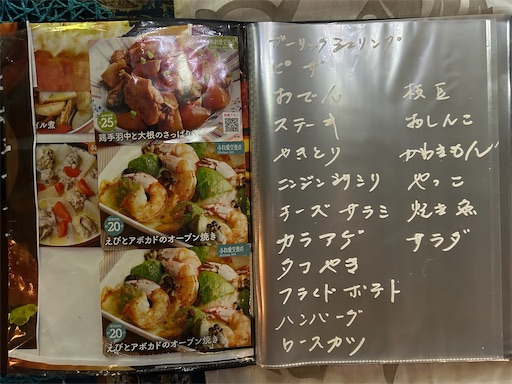 イル煮
小田急交通の
25
鶏手羽中と大根のさっぱり
20
えびとアボカドのオーブン焼き
20
えびとアボカドのオーブン焼き
ガーリックシュリンプ
ピザ
おでん
ステーキ
やきとり
ニンジンシリシリ
チーズ サラミ
カラアゲ
タコやき
フライドポテト
ハンバーグ
ロースカツ
枝豆
おしんこ
かわきもん
やっこ
焼き魚
サラダ